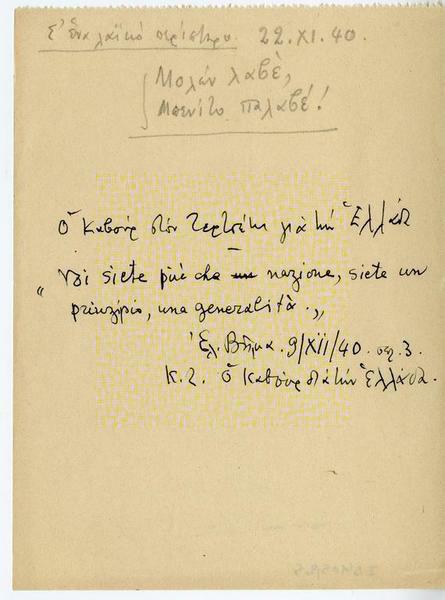 Σ' ἕνα λαϊκό περίπτερο. 22.XI.40.
Μολὼν λαβὲ,
Μπενίτο παλαβέ!
Ὁ Καβούρ στόν Τερτσέτη γιά τήν Ἑλλάδα
—
"Voi siete più che nazione, siete un
principio, una generalità.„
Ἐλ. Βῆμα. 9/XII/40. σελ. 3.
Κ.Σ. Ὁ Καβούρ διά τήν Ἑλλάδα.